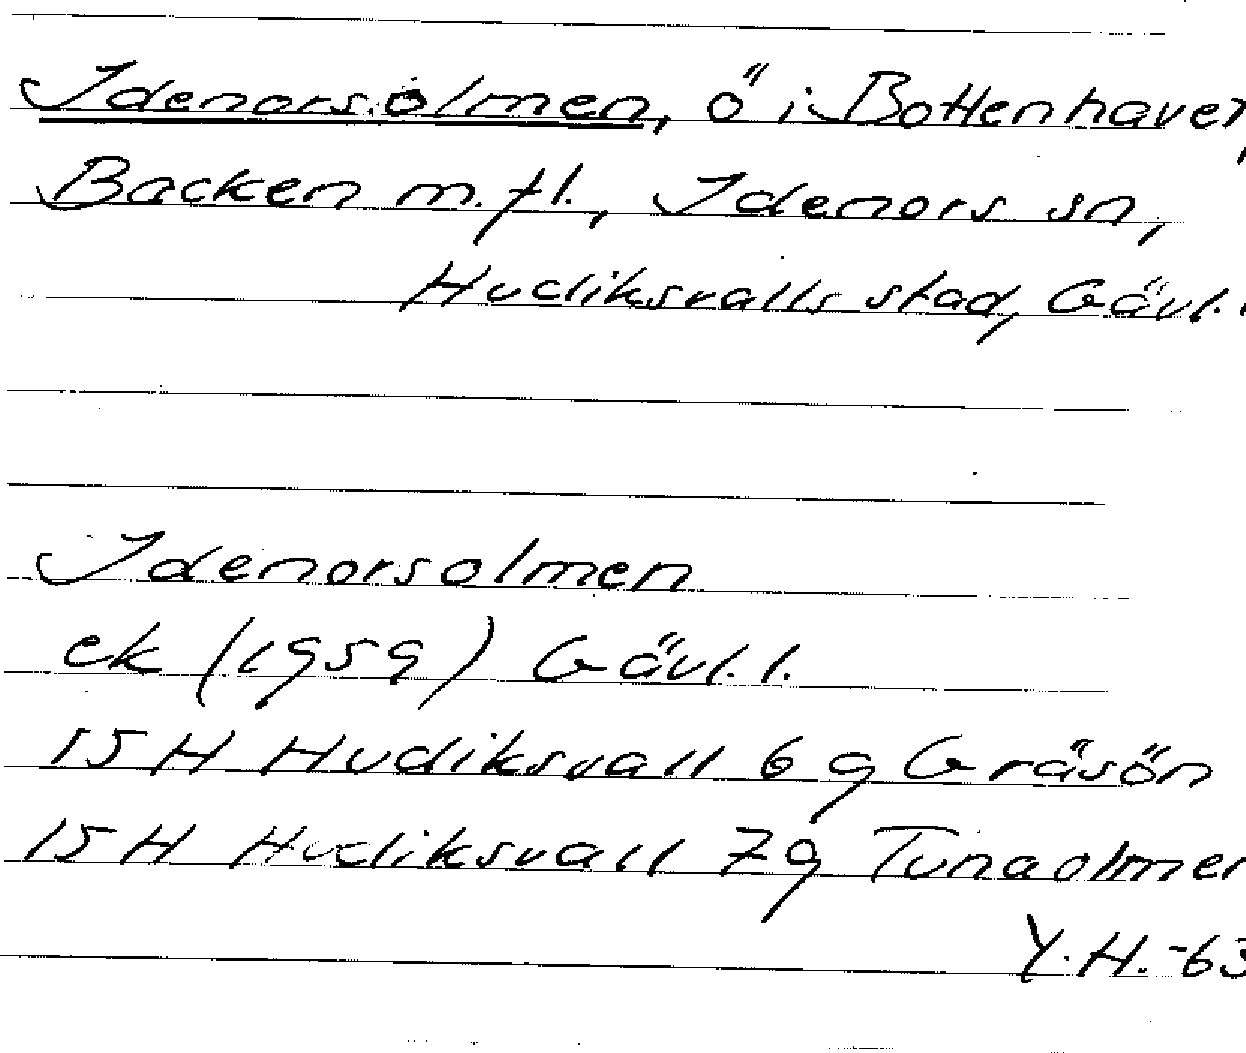 Idenorsolmen, ö i Bottenhavet,
Backen m.fl., Idenors sn,
Hudiksvalls stad, Gävl. l.
Idenorsolmen
ek (1959) Gävl. l.
15 H Hudiksvall 6 g Gräsön
15 H Hudiksvall 7 g Tunaolmen
Y.H. -63